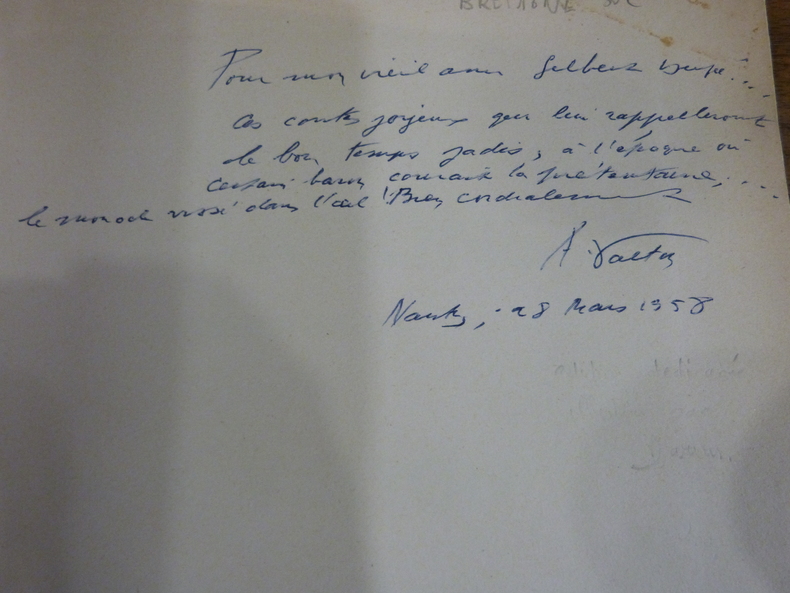 BRETAGNE SUD
Pour mon vieil ami Gilbert Dupé...
ces contes joyeux qui lui rappelleront
le bon temps jadis, à l'époque où
certain baron courait la prétentaine, ...
le monocle vissé dans l'œil ! Bien cordialement
Nantes, 28 Mars 1958
dédicacé